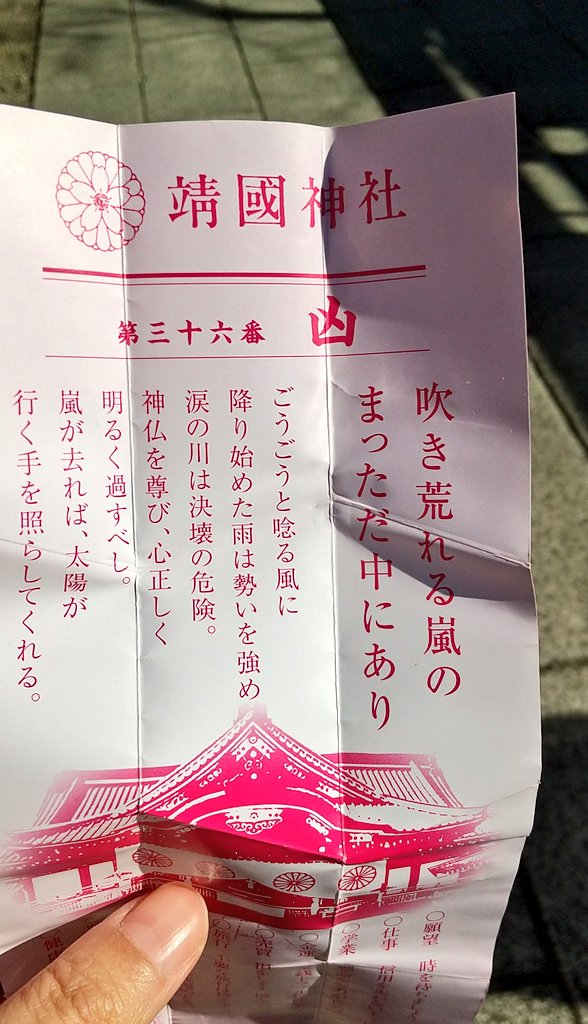 靖國神社
第三十六番 凶
吹き荒れる嵐の
まっただ中にあり
ごうごうと唸る風に
降り始めた雨は勢いを強め
涙の川は決壊の危険。
神仏を尊び、心正しく
明るく過すべし。
嵐が去れば、太陽が
行く手を照らしてくれる。
○願望 時を待ち
○仕事 信用
○学業
○金運
○売買
○旅行